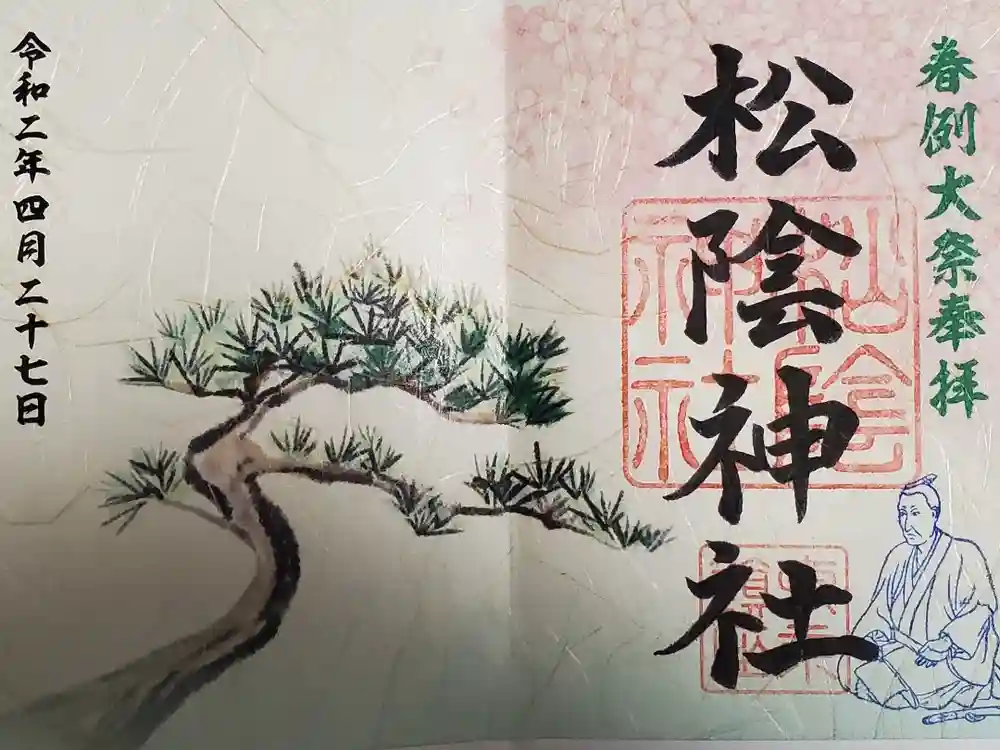 春例大祭奉拝
松陰神社
松陰神社
令和二年四月二十七日